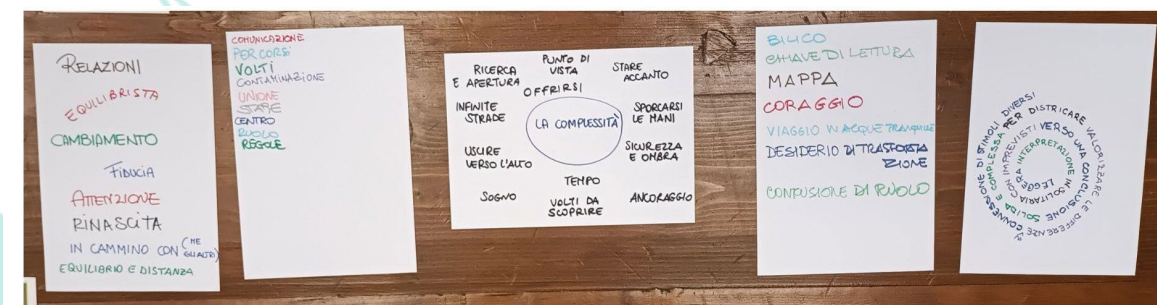 RELAZIONI
EQUILIBRISTA
CAMBIAMENTO
FIDUCIA
ATTENZIONE
RINASCITA
IN CAMMINO CON (ME
GLI ALTRI)
EQUILIBRIO E DISTANZA
COMUNICAZIONE
PERCORSI
VOLTI
CONTAMINAZIONE
UNIONE
STARE
CENTRO
RUOLO
REGOLE
RICERCA
E APERTURA
PUNTO DI
VISTA
OFFRIRSI
STARE
ACCANTO
INFINITE
STRADE
LA COMPLESSITÀ
SPORCARSI
LE MANI
USCIRE
VERSO L'ALTO
SICUREZZA
E OMBRA
SOGNO
TEMPO
VOLTI DA
SCOPRIRE
ANCORAGGIO
BILICO
CHIAVE DI LETTURA
MAPPA
CORAGGIO
VIAGGIO IN ACQUE TRANQUILLE
DESIDERIO DI TRASFORMA
ZIONE
CONFUSIONE DI RUOLO
CONNESSIONE DI STIMOLI DIVERSI
PER DISTRICARE
VALORIZZARE LE DIFFERENZE
SOLIDA E COMPLESSA
CON IMPREVISTI VERSO UNA CONCLUSIONE
LEGGERA INTERPRETAZIONE IN SOLITARIA